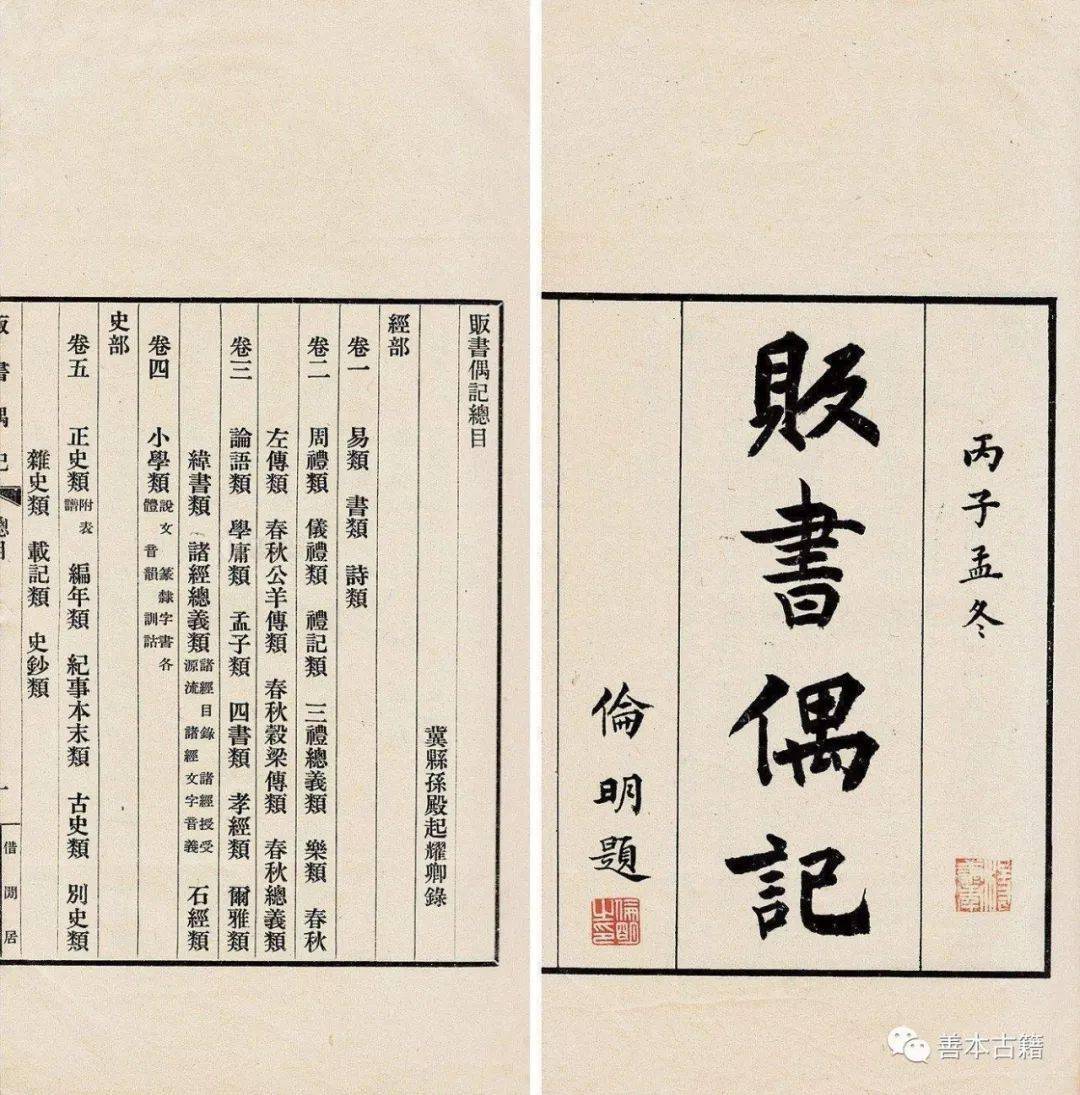 丙子孟冬
販書偶記
倫明題
倫明之印
販書偶記總目
冀縣孫殿起耀卿錄
經部
卷一 易類 書類 詩類
卷二 周禮類 儀禮類 禮記類 三禮總義類 樂類 春秋
左傳類 春秋公羊傳類 春秋穀梁傳類 春秋總義類
卷三 論語類 學庸類 孟子類 四書類 孝經類 爾雅類
緯書類 諸經總義類 諸經目錄 諸經授受源流 諸經文字音義 石經類
卷四 小學類 說文 篆隸字書各體 音韻 訓詁
史部
卷五 正史類 附表譜 編年類 紀事本末類 古史類 別史類
雜史類 載記類 史鈔類
販書偶記 總目 一 借閒居
善本古籍